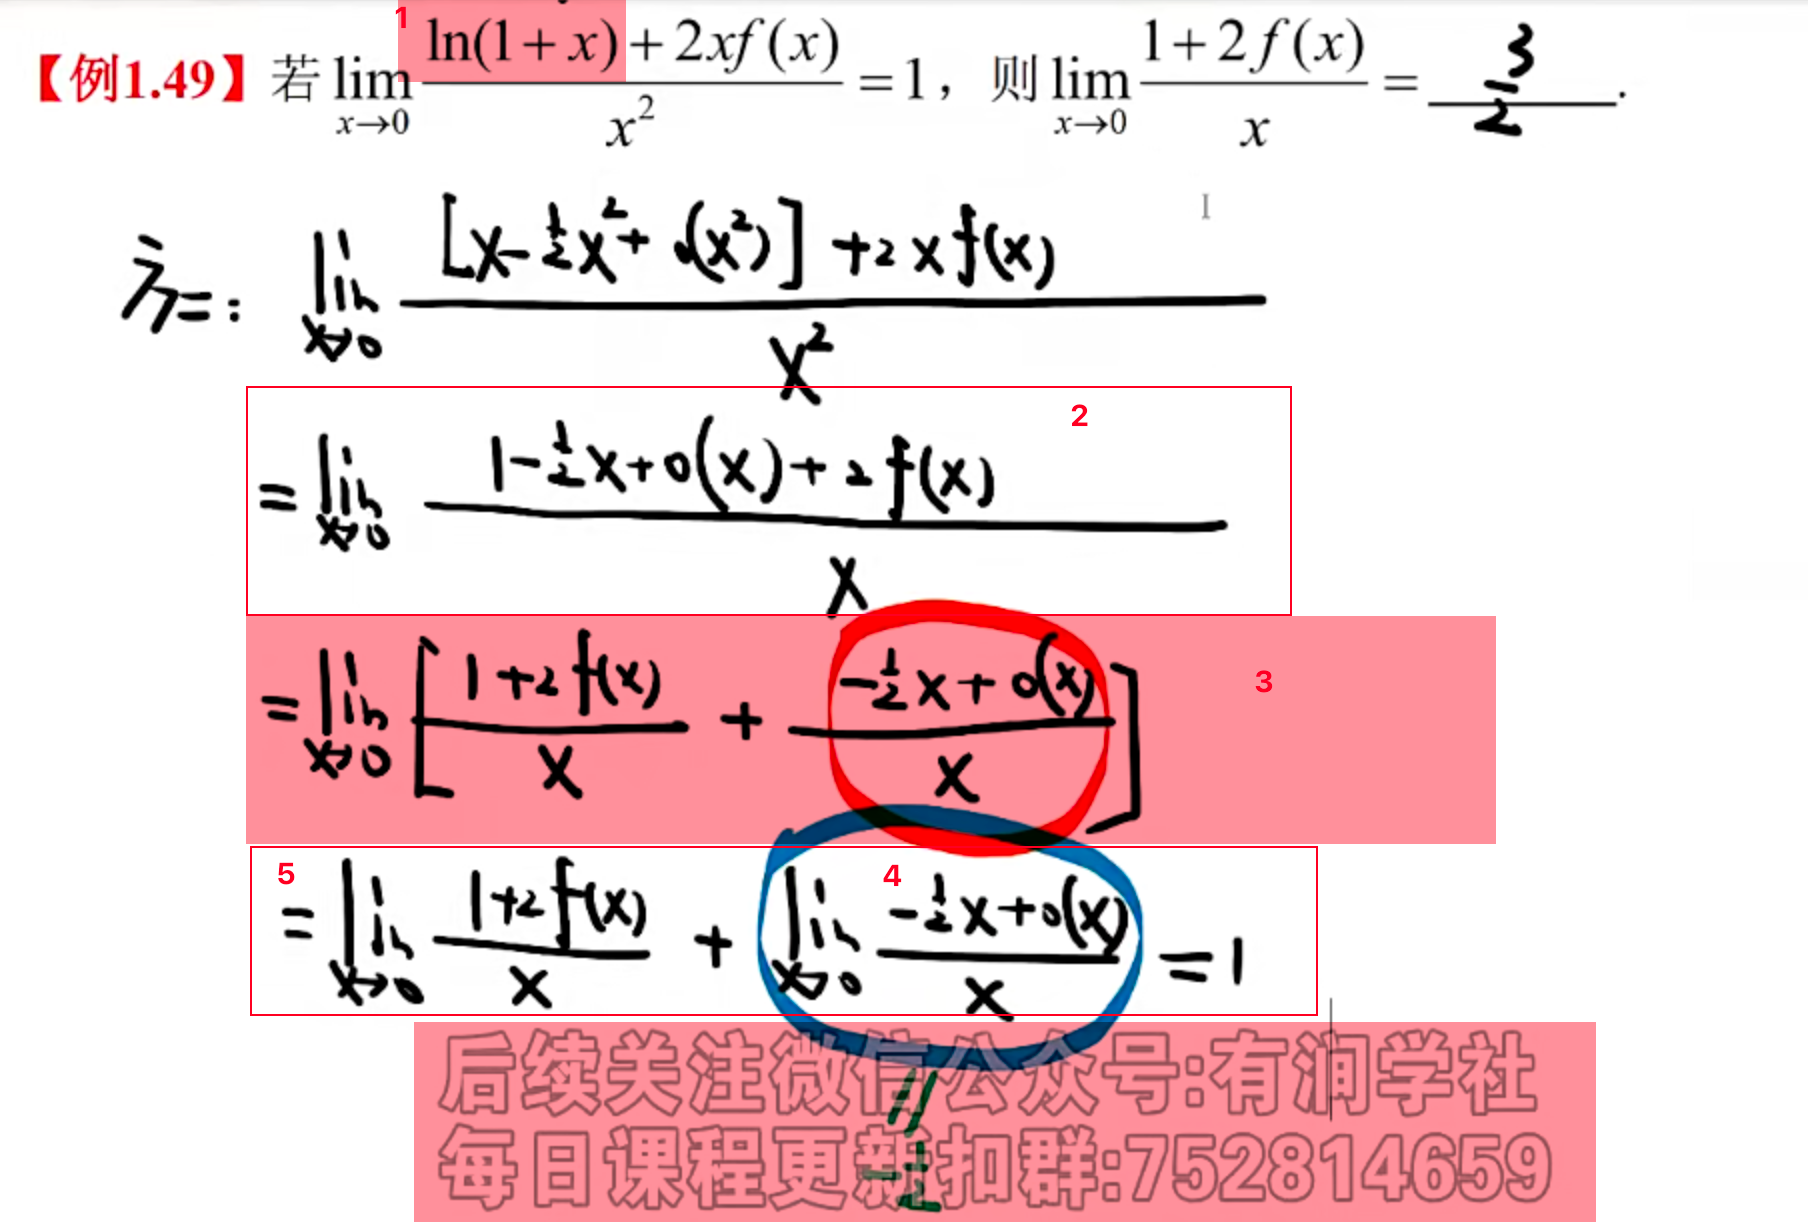 1
【例1.49】若 lim_{x→0} (ln(1+x)+2xf(x))/x² =1，则 lim_{x→0} (1+2f(x))/x = 3/2 .
方二： lim_{x→0} ([x-½x²+o(x²)]+2xf(x))/x²
2
= lim_{x→0} (1-½x+o(x)+2f(x))/x
= lim_{x→0} [(1+2f(x))/x + (-½x+o(x))/x]
3
5
4
= lim_{x→0} (1+2f(x))/x + lim_{x→0} (-½x+o(x))/x =1
后续关注微信公众号:有润学社
每日课程更新扣群:752814659
-½